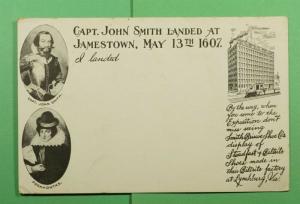 CAPT. JOHN SMITH LANDED AT
JAMESTOWN, MAY 13TH 1607.
I landed
CAPT. JOHN SMITH.
POCAHONTAS.
By the way, when
you come to the
Exposition don't
miss seeing
Smith Briscoe Shoe Co's
display of
Steadfast & Biltrite
Shoes, made in
this Biltrite factory
at Lynchburg, Va.